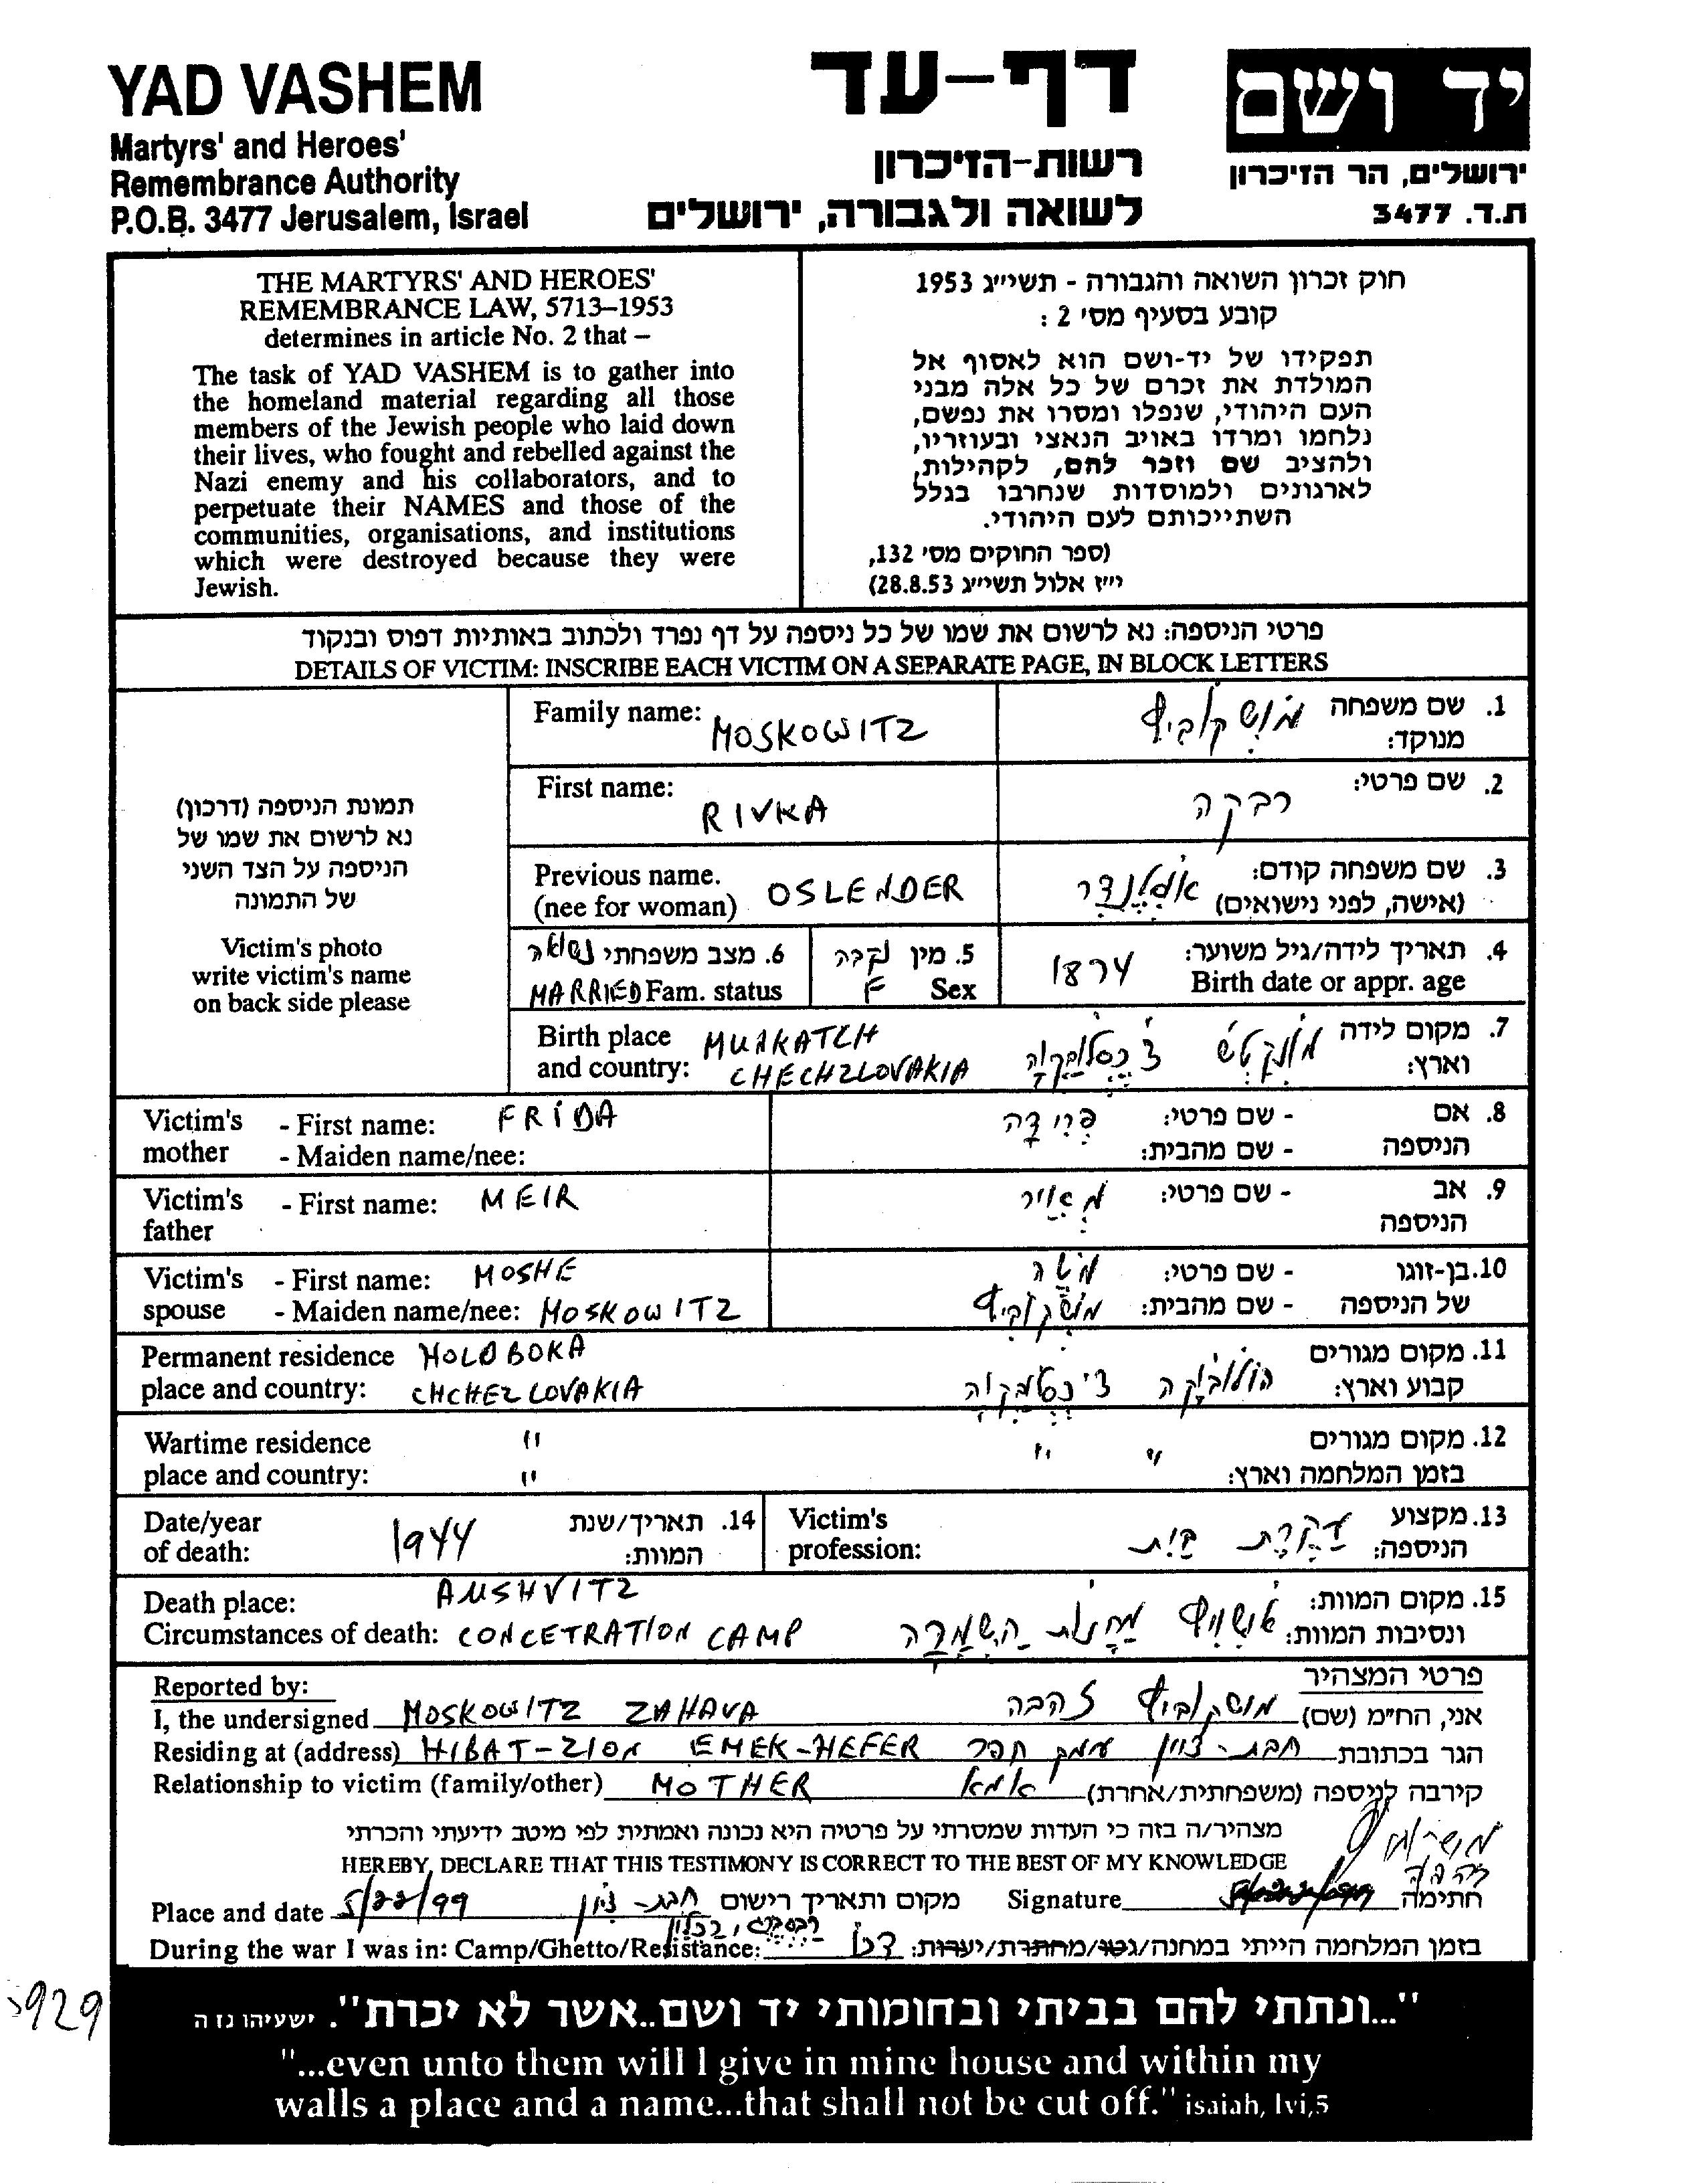 YAD VASHEM
Martyrs' and Heroes'
Remembrance Authority
P.O.B. 3477 Jerusalem, Israel
דף-עד
רשות-הזיכרון
לשואה ולגבורה, ירושלים
יד ושם
ירושלים, הר הזיכרון
ת.ד. 3477
THE MARTYRS' AND HEROES'
REMEMBRANCE LAW, 5713–1953
determines in article No. 2 that –
The task of YAD VASHEM is to gather into
the homeland material regarding all those
members of the Jewish people who laid down
their lives, who fought and rebelled against the
Nazi enemy and his collaborators, and to
perpetuate their NAMES and those of the
communities, organisations, and institutions
which were destroyed because they were
Jewish.
חוק זכרון השואה והגבורה - תשי״ג 1953
קובע בסעיף מס׳ 2 :
תפקידו של יד-ושם הוא לאסוף אל
המולדת את זכרם של כל אלה מבני
העם היהודי, שנפלו ומסרו את נפשם,
נלחמו ומרדו באויב הנאצי ובעוזריו,
ולהציב שם וזכר להם, לקהילות,
לארגונים ולמוסדות שנחרבו בגלל
השתייכותם לעם היהודי.
(ספר החוקים מס׳ 132,
י״ז אלול תשי״ג 28.8.53)
פרטי הניספה: נא לרשום את שמו של כל ניספה על דף נפרד ולכתוב באותיות דפוס ובנקוד
DETAILS OF VICTIM: INSCRIBE EACH VICTIM ON A SEPARATE PAGE, IN BLOCK LETTERS
תמונת הניספה (דרכון)
נא לרשום את שמו של
הניספה על הצד השני
של התמונה
Victim's photo
write victim's name
on back side please
Family name: MOSKOWITZ
1. שם משפחה מנוקד: מושקוביץ
First name: RIVKA
2. שם פרטי: רבקה
Previous name. (nee for woman) OSLENDER
3. שם משפחה קודם: (אישה, לפני נישואים) אוסלנדר
4. תאריך לידה/גיל משוער: 1874
Birth date or appr. age
5. מין נקבה
F Sex
6. מצב משפחתי נשואה
MARRIED Fam. status
Birth place and country: MUNKATCH
CHECHZLOVAKIA
7. מקום לידה וארץ: מונקטש צ'כסלובקיה
Victim's mother - First name: FRIDA
- Maiden name/nee:
8. אם הניספה - שם פרטי: פרידה
- שם מהבית:
Victim's father - First name: MEIR
9. אב הניספה - שם פרטי: מאיר
Victim's spouse - First name: MOSHE
- Maiden name/nee: MOSKOWITZ
10. בן-זוגו של הניספה - שם פרטי: משה
- שם מהבית: מושקוביץ
Permanent residence HOLOBOKA
place and country: CHCHEZLOVAKIA
11. מקום מגורים קבוע וארץ: הולובוקה צ'כסלובקיה
Wartime residence "
place and country: "
12. מקום מגורים בזמן המלחמה וארץ: " "
Date/year of death: 1944
14. תאריך/שנת המוות:
Victim's profession:
13. מקצוע הניספה: עקרת בית
Death place: AUSHVITZ
Circumstances of death: CONCETRATION CAMP
15. מקום המוות: ונסיבות המוות: אושויץ מחנות השמדה
Reported by:
פרטי המצהיר
I, the undersigned MOSKOWITZ ZAHAVA
אני, הח״מ (שם) מושקוביץ זהבה
Residing at (address) HIBAT-ZION EMEK-HEFER
הגר בכתובת חבת-ציון עמק חפר
Relationship to victim (family/other) MOTHER
קירבה לניספה (משפחתית/אחרת) אמא
מצהיר/ה בזה כי העדות שמסרתי על פרטיה היא נכונה ואמתית לפי מיטב ידיעתי והכרתי
HEREBY, DECLARE THAT THIS TESTIMONY IS CORRECT TO THE BEST OF MY KNOWLEDGE
Place and date 5/22/99 חבת-ציון מקום ותאריך רישום
Signature חתימה
מושקוביץ
זהבה
During the war I was in: Camp/Ghetto/Resistance:
בזמן המלחמה הייתי במחנה/גטו/מחתרת/יערות:
5929
"...ונתתי להם בביתי ובחומותי יד ושם..אשר לא יכרת". ישעיהו נז ה
"...even unto them will I give in mine house and within my
walls a place and a name...that shall not be cut off." isaiah, lvi,5